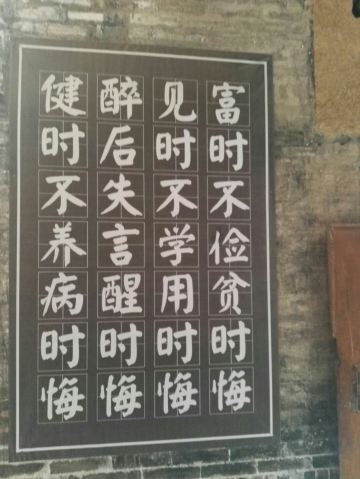 富时不俭贫时悔
见时不学用时悔
醉后失言醒时悔
健时不养病时悔